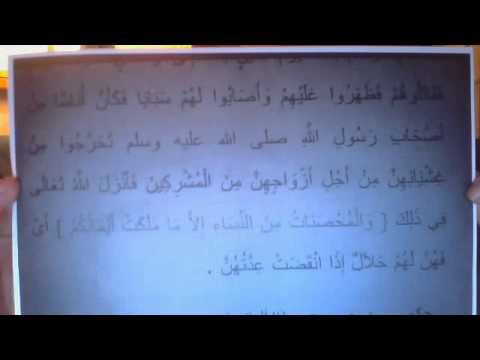 فَقَاتَلُوهُمْ فَظَهَرُوا عَلَيْهِمْ وَأَصَابُوا لَهُمْ سَبَايَا فَكَأَنَّ أُنَاسًا مِنْ
أَصْحَابِ رَسُولِ اللَّهِ صلى الله عليه وسلم تَحَرَّجُوا مِنْ
غِشْيَانِهِنَّ مِنْ أَجْلِ أَزْوَاجِهِنَّ مِنَ الْمُشْرِكِينَ فَأَنْزَلَ اللَّهُ تَعَالَى
فِي ذَلِكَ { وَالْمُحْصَنَاتُ مِنَ النِّسَاءِ إِلاَّ مَا مَلَكَتْ أَيْمَانُكُمْ } أَىْ
فَهُنَّ لَهُمْ حَلاَلٌ إِذَا انْقَضَتْ عِدَّتُهُنَّ .